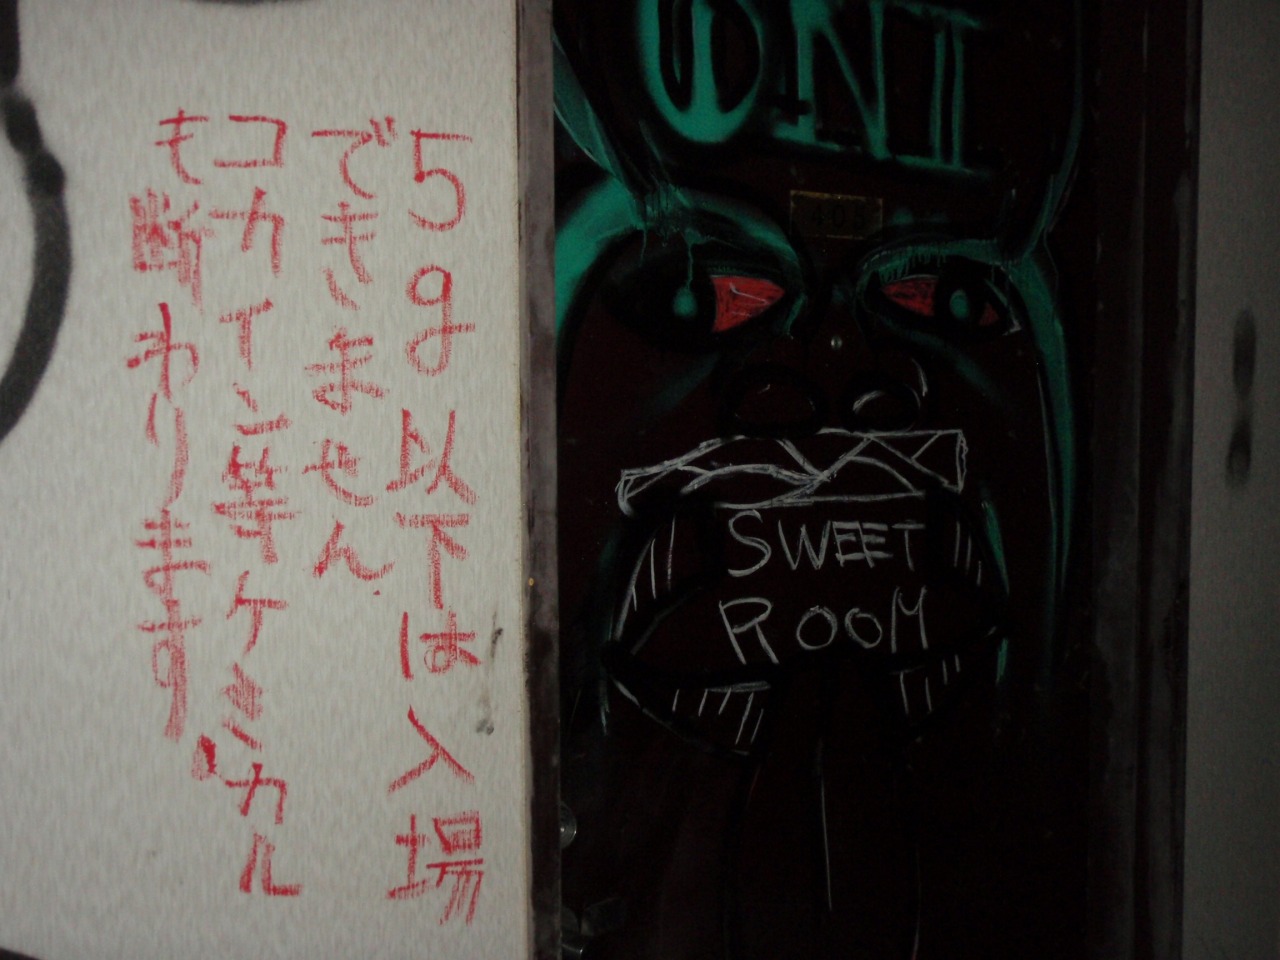 5g以下は入場
できません
コカイン等ケミカル
も断わります
ONI
SWEET
ROOM